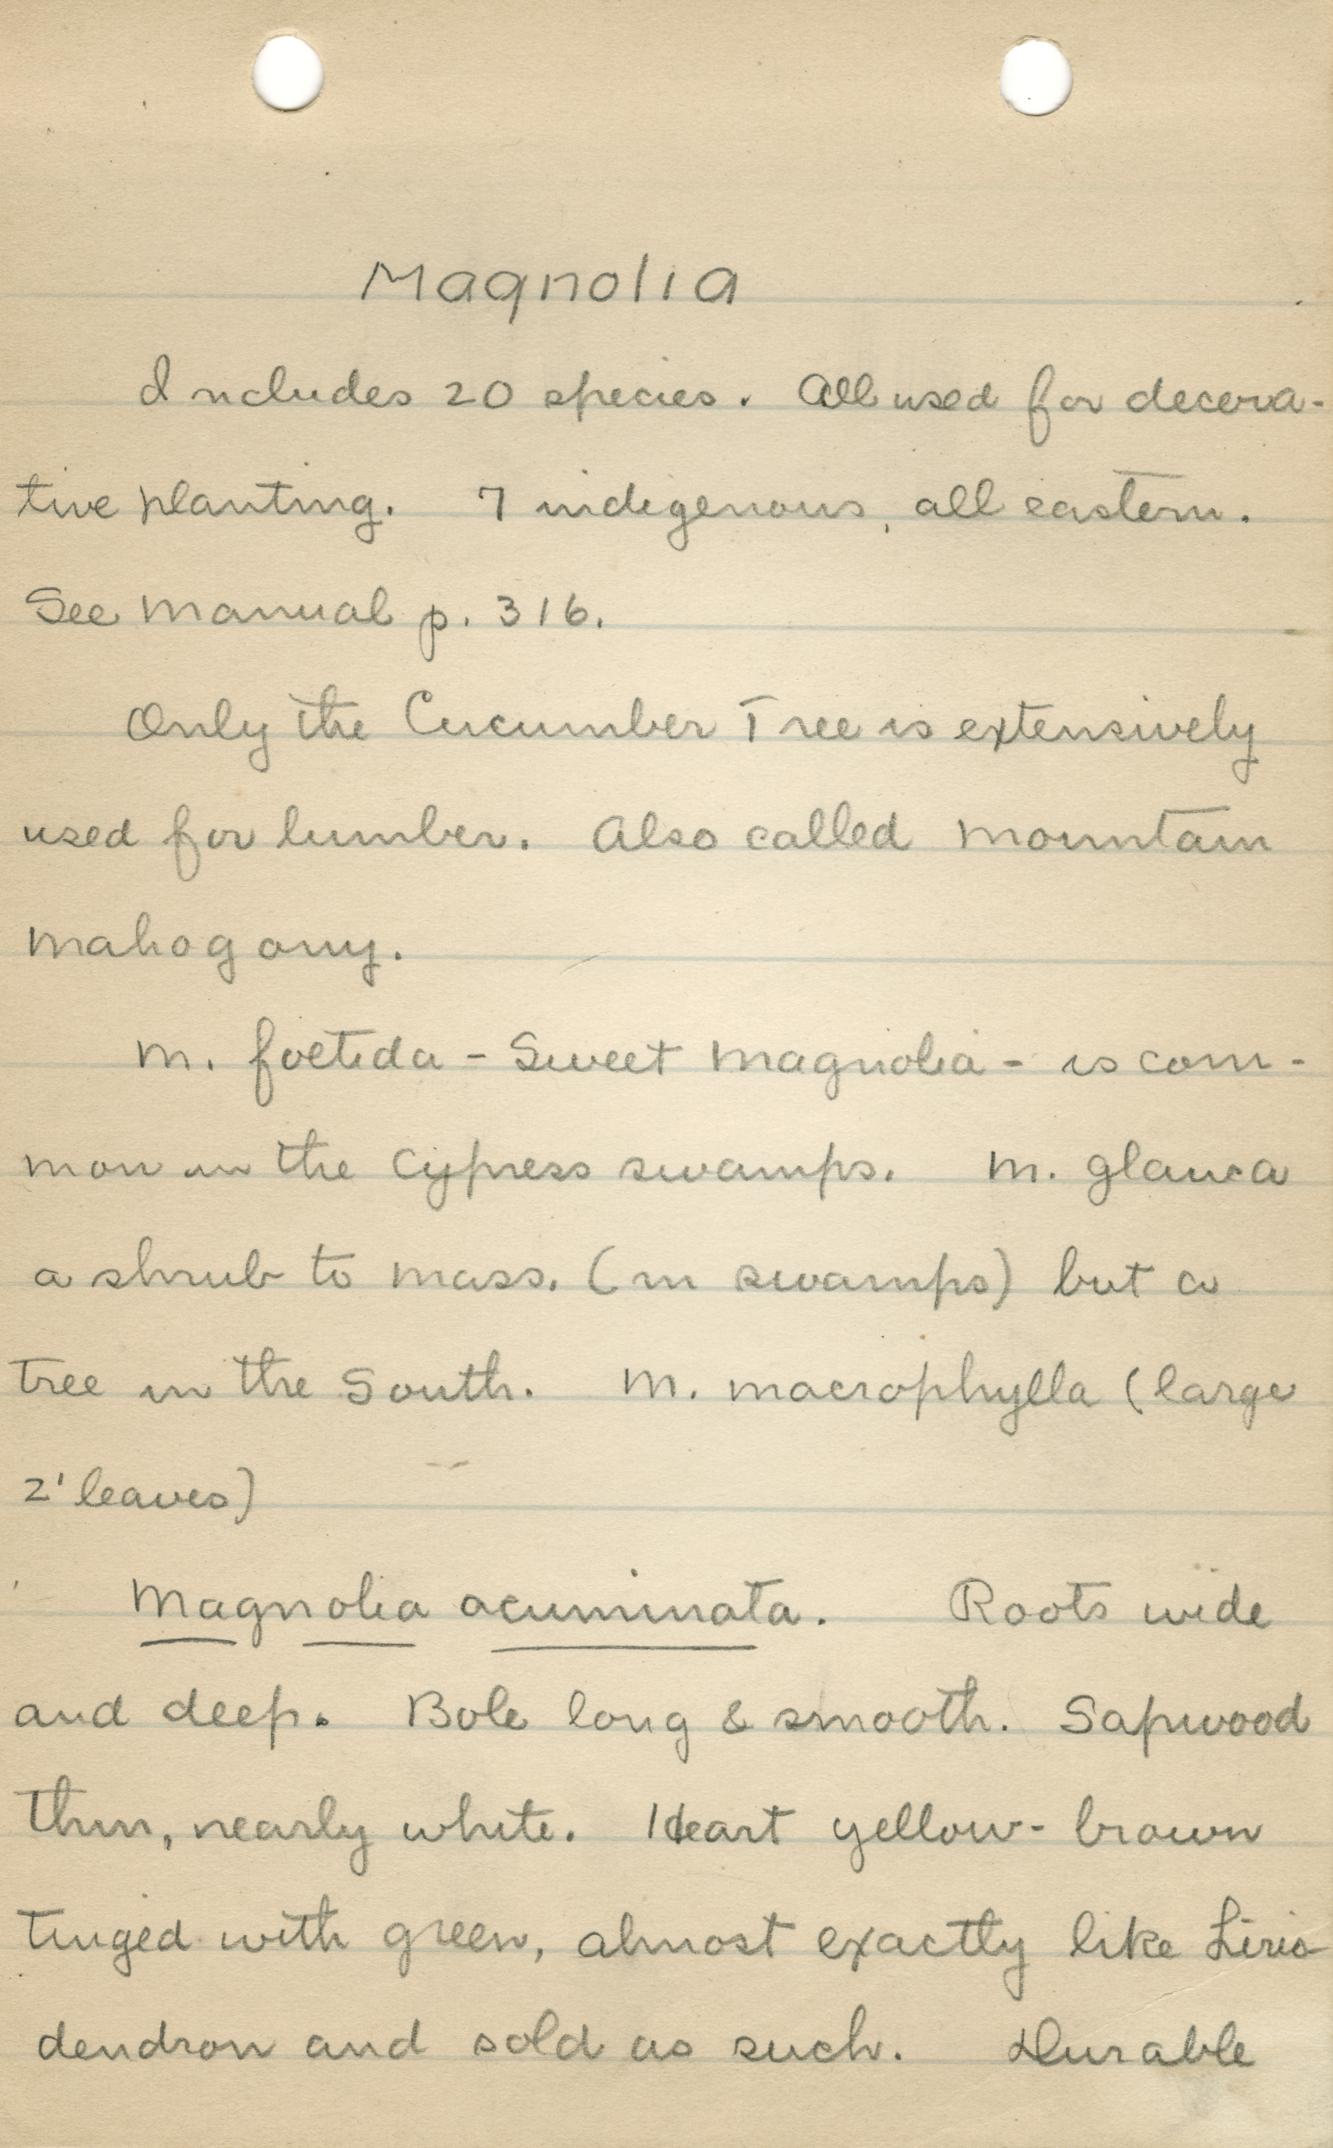 Magnolia
Includes 20 species. All used for decora-
tive planting. 7 indigenous, all eastern.
See Manual p. 316.
Only the Cucumber Tree is extensively
used for lumber. Also called Mountain
Mahogany.
M. foetida - Sweet Magnolia - is com-
mon in the Cypress swamps. M. glauca
a shrub to Mass. (in swamps) but a
tree in the South. M. macrophylla (large
2' leaves)
Magnolia acuminata. Roots wide
and deep. Bole long & smooth. Sapwood
thin, nearly white. Heart yellow-brown
tinged with green, almost exactly like Lirio-
dendron and sold as such. Durable